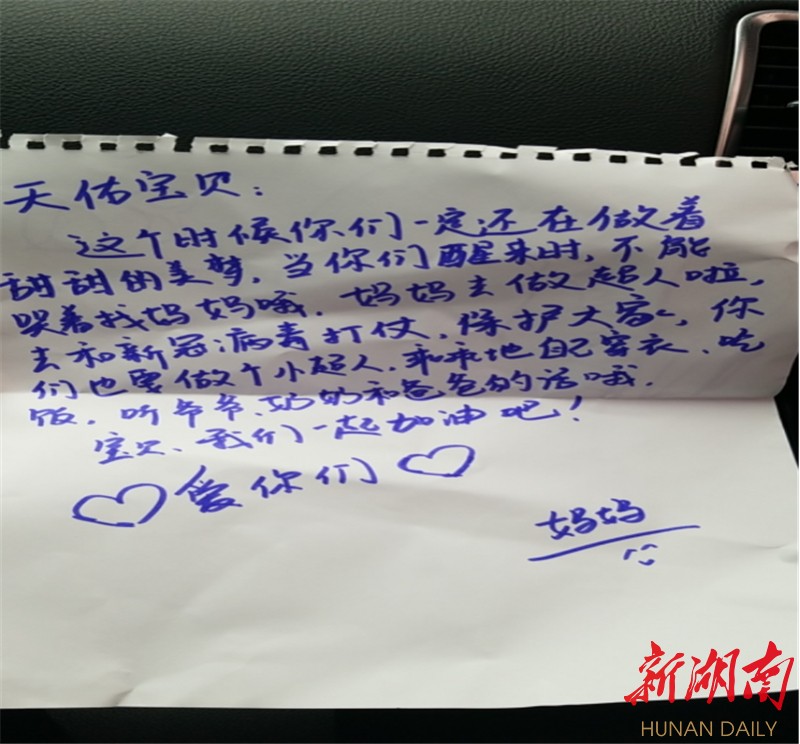 天佑宝贝：
这个时候你们一定还在做着
甜甜的美梦，当你们醒来时，不能
哭着找妈妈哦．妈妈去做超人啦，
去和新冠病毒打仗，保护大家，你
们也要做个小超人．乖乖地自己穿衣、吃
饭，听爷爷、奶奶和爸爸的话哦．
宝贝、我们一起加油吧！
♡爱你们♡
妈妈
新湖南
HUNAN DAILY